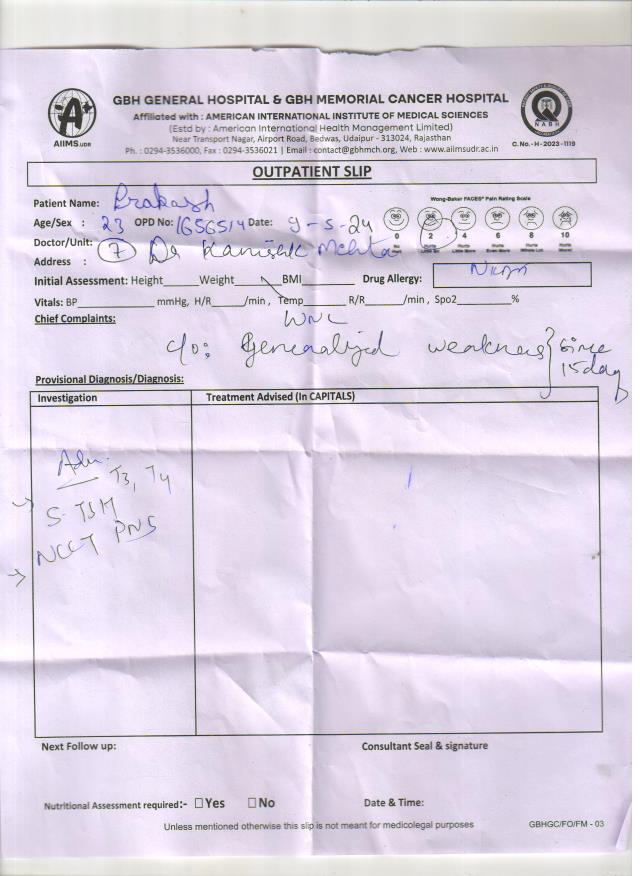 GBH GENERAL HOSPITAL & GBH MEMORIAL CANCER HOSPITAL
Affiliated with : AMERICAN INTERNATIONAL INSTITUTE OF MEDICAL SCIENCES
(Estd by : American International Health Management Limited)
Near Transport Nagar, Airport Road, Bedwas, Udaipur - 313024, Rajasthan
Ph. : 0294-3536000, Fax : 0294-3536021 | Email : contact@gbhmch.org, Web : www.aiimsudr.ac.in
AIIMS.UDR
NABH
C. No. - H - 2023 - 1119
OUTPATIENT SLIP
Patient Name: Prakash
Wong-Baker FACES® Pain Rating Scale
Age/Sex : 23 OPD No: 1656514 Date: 9-5-24
0 2 4 6 8 10
No Hurt Hurts Little Bit Hurts Little More Hurts Even More Hurts Whole Lot Hurts Worst
Doctor/Unit: 7 Dr Kanishk Mehta
Address :
Initial Assessment: Height Weight BMI Drug Allergy: NKDA
Vitals: BP mmHg, H/R /min , Temp R/R /min , Spo2 %
WNL
Chief Complaints:
c/o: Generalized weakness } since 15 day
Provisional Diagnosis/Diagnosis:
Investigation Treatment Advised (In CAPITALS)
Adv.
T3, T4
→ S. TSH
→ NCCT PNS
Next Follow up: Consultant Seal & signature
Nutritional Assessment required:- □Yes □No Date & Time:
Unless mentioned otherwise this slip is not meant for medicolegal purposes GBHGC/FO/FM - 03